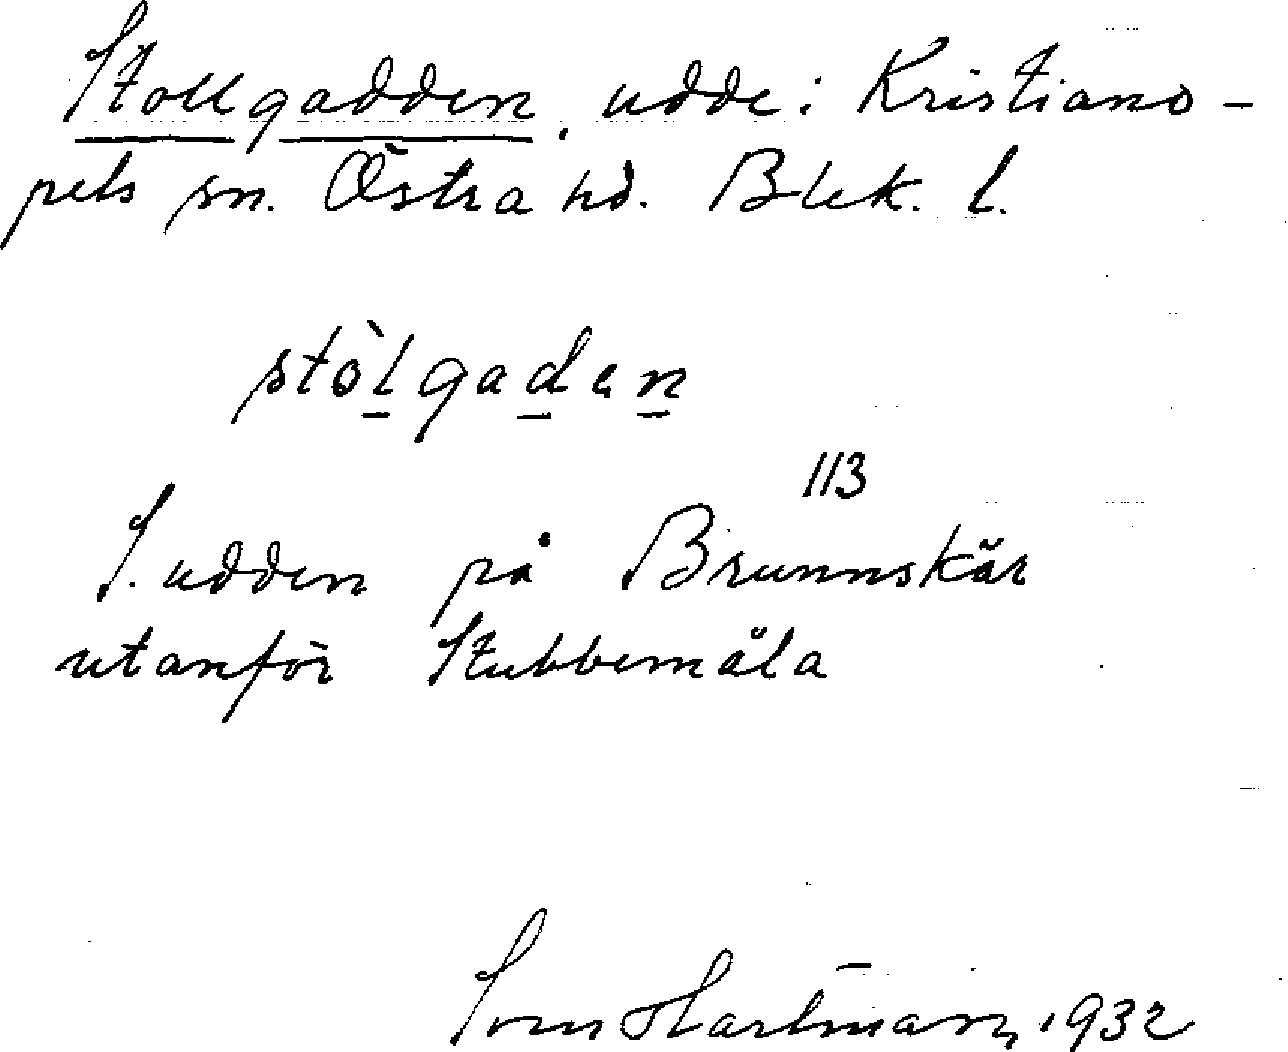 Stollgadden, udde i Kristiano-
pels sn. Östra hd. Blek. l.
stòlgaden
113
S. udden på Brunnskär
utanför Stubbemåla
Sven Hartman, 1932